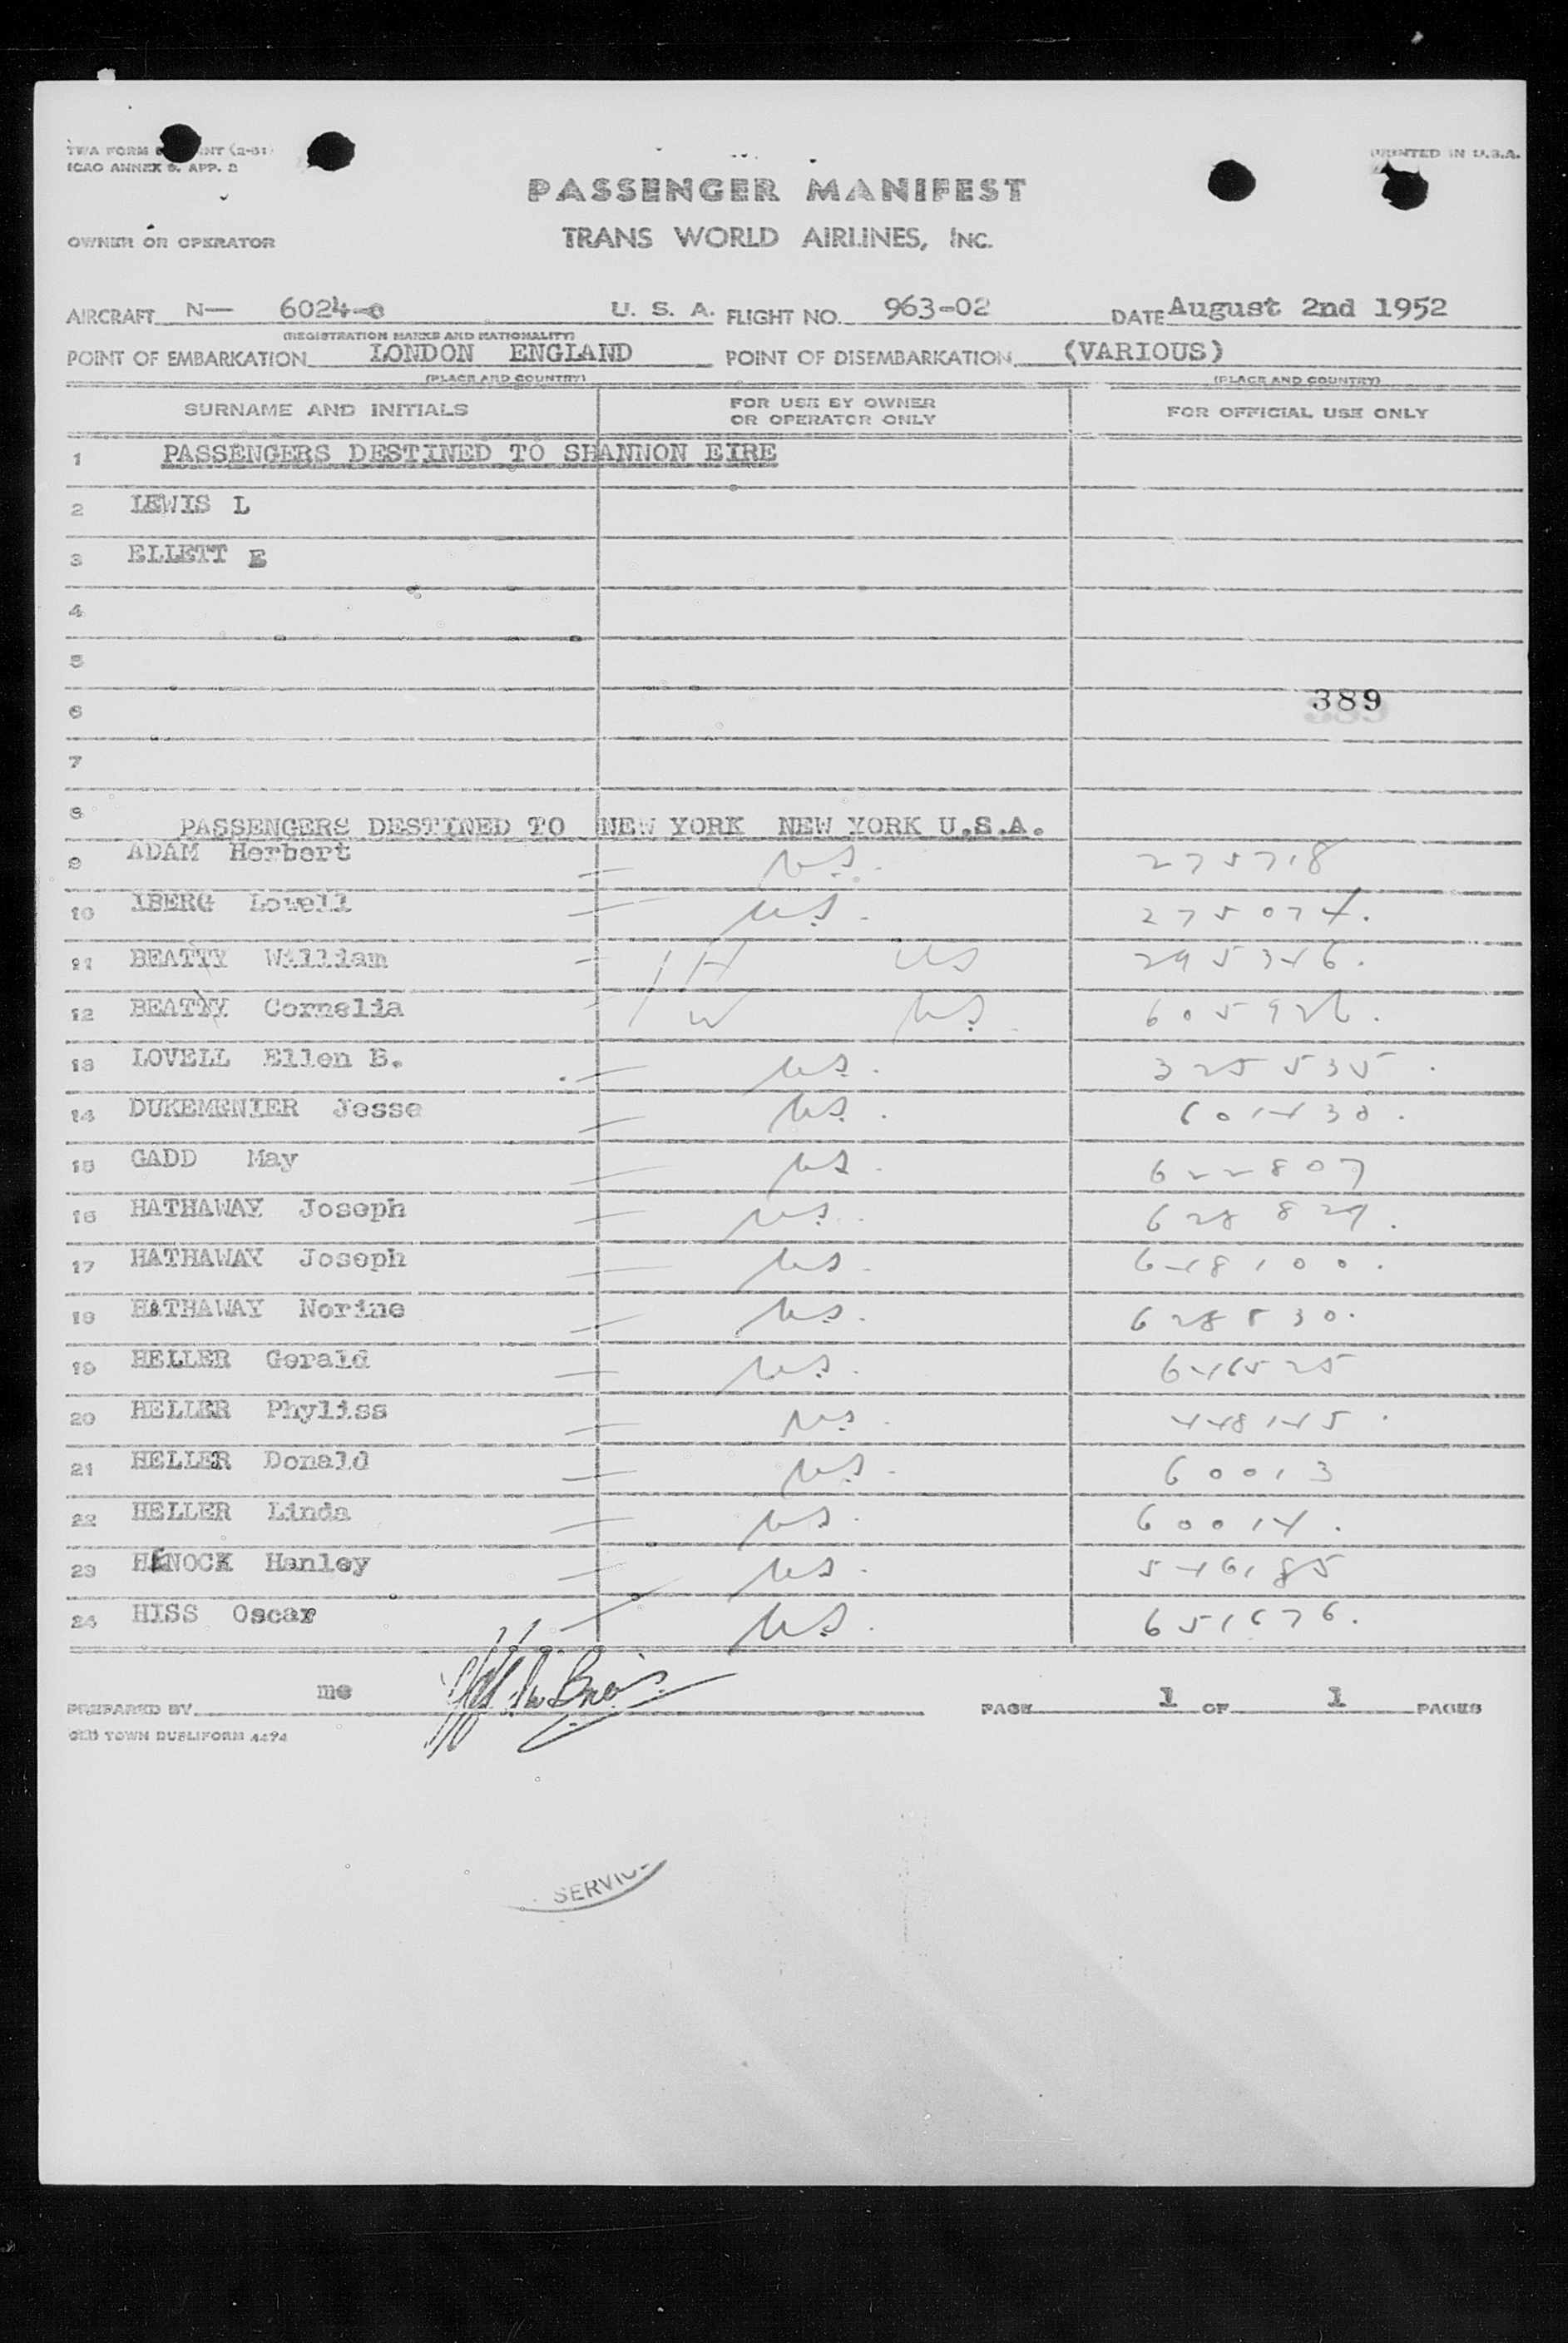 TWA FORM INT (2-51)
ICAO ANNEX 9. APP. 2
PRINTED IN U.S.A.
PASSENGER MANIFEST
OWNER OR OPERATOR TRANS WORLD AIRLINES, INC.
AIRCRAFT N— 6024-c U. S. A. FLIGHT NO. 963-02 DATE August 2nd 1952
(REGISTRATION MARKS AND NATIONALITY)
POINT OF EMBARKATION LONDON ENGLAND POINT OF DISEMBARKATION (VARIOUS)
(PLACE AND COUNTRY) (PLACE AND COUNTRY)
SURNAME AND INITIALS FOR USE BY OWNER OR OPERATOR ONLY FOR OFFICIAL USE ONLY
1 PASSENGERS DESTINED TO SHANNON EIRE
2 LEWIS L
3 ELLETT E
4
5
6 389
7
8 PASSENGERS DESTINED TO NEW YORK NEW YORK U.S.A.
9 ADAM Herbert — US. 275718
10 IBERG Lowell — US. 275074.
11 BEATTY William — H US 295346.
12 BEATTY Cornelia — W US 605926.
13 LOVELL Ellen B. — US. 325535.
14 DUKEMENIER Jesse — US. 601430.
15 GADD May — US. 622807
16 HATHAWAY Joseph — US. 628829.
17 HATHAWAY Joseph — US. 648100.
18 HATHAWAY Norine — US. 628830.
19 HELLER Gerald — US. 646525
20 HELLER Phyliss — US. 448145.
21 HELLER Donald — US. 60013
22 HELLER Linda — US. 60014.
23 HENOCK Hanley — US. 546185
24 HISS Oscar — US. 651676.
PREPARED BY me PAGE 1 OF 1 PAGES
OLD TOWN DUPLIFORM 4494
SERVICE